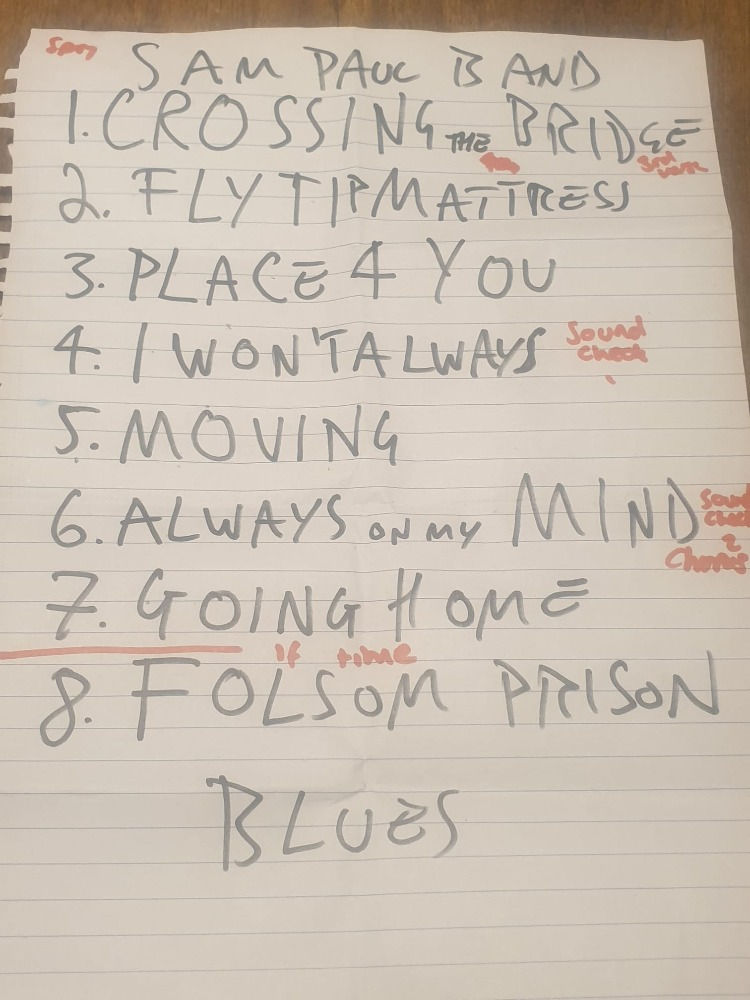 5pm SAM PAUL BAND
1. CROSSING THE BRIDGE
3rd verse
2. FLYTIPMATTRESS
3. PLACE 4 YOU
4. I WON'T ALWAYS Sound
check
5. MOVING
6. ALWAYS ON MY MIND Sound
check
2
Chorus
7. GOING HOME
if time
8. FOLSOM PRISON
BLUES